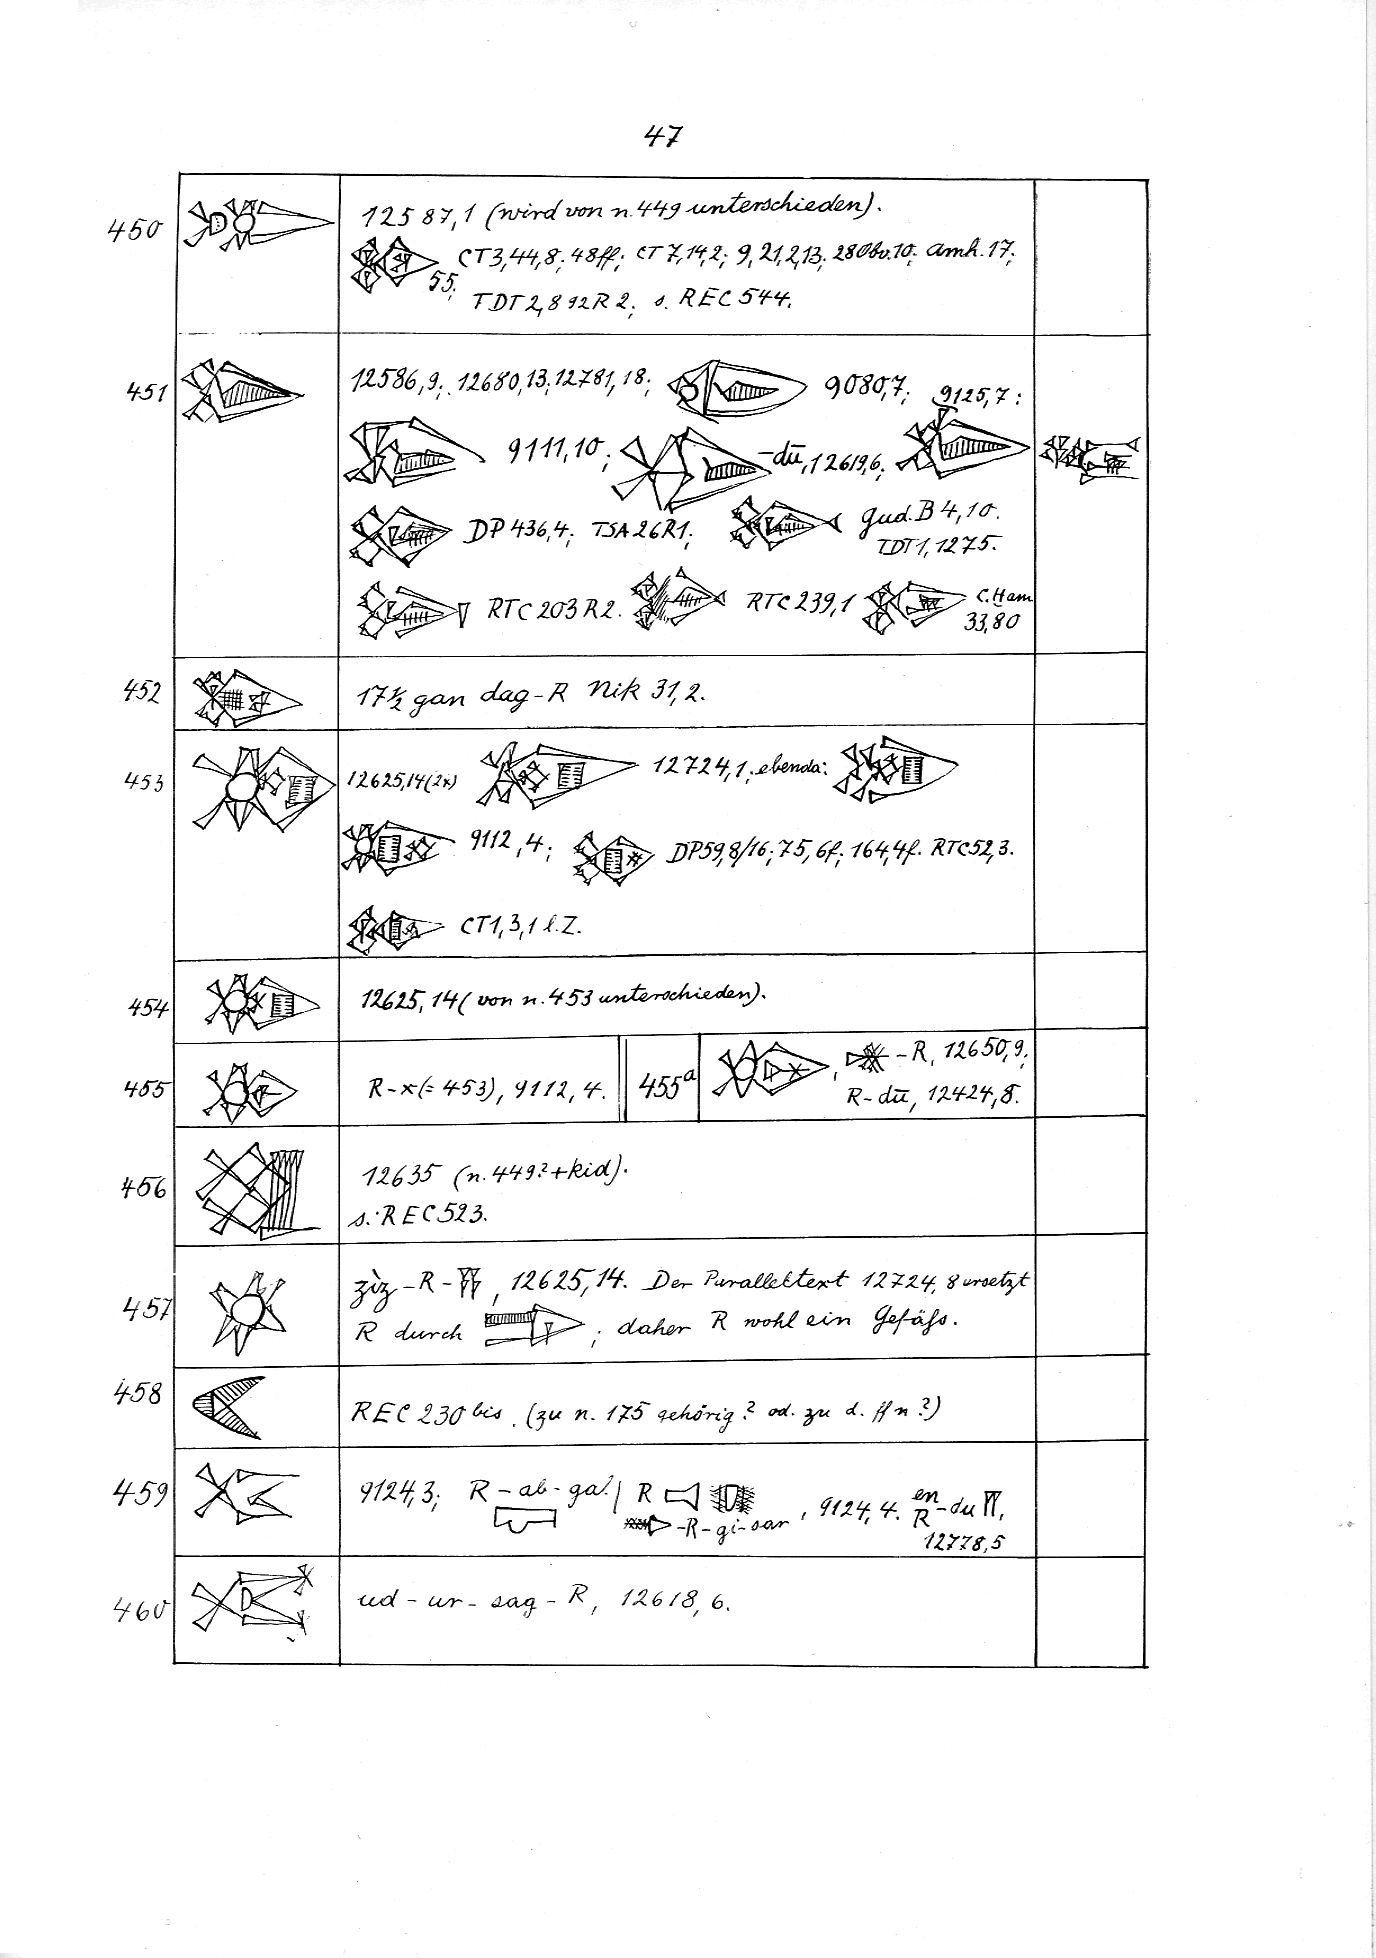 47
450 12587,1 (wird von n.449 unterschieden).
CT3,44,8; 48ff; CT 7,14,2; 9,21,2,13; 28 Obv.10; Amh. 17;
55;
TDT 2,892 R 2; s. REC 544.
451 12586,9; 12680,13; 12781,18; 9080,7; 9125,7:
9111,10; -dū, 12619,6;
DP 436,4; TSA 26 R1; gud. B 4,10.
TDT 1,1275.
RTC 203 R2. RTC 239,1 C. Ham
33,80
452 17½ gan dag-R Nik 31,2.
453 12625,14 (2x) 12724,1; ebenda:
9112,4; DP 59,8/16; 75,6f; 164,4f. RTC 52,3.
CT 1,3,1 l.Z.
454 12625,14 (von n.453 unterschieden).
455 R-x (= 453), 9112,4. 455a , -R, 12650,9;
R-dū, 12424,8.
456 12635 (n.449? + kid).
s. REC 523.
457 zìz-R- , 12625,14. Der Paralleltext 12724,8 ersetzt
R durch ; daher R wohl ein Gefäss.
458 REC 230 bis. (zu n. 175 gehörig? od. zu d. ff n?)
459 9124,3; R-ab-ga? / R , 9124,4. en
R-du ,
-R-gi-sar
12778,5
460 ud-ur-sag-R, 12618,6.